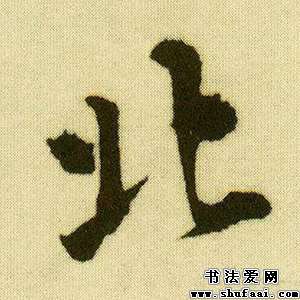 北
书法爱网
www.shufaai.com